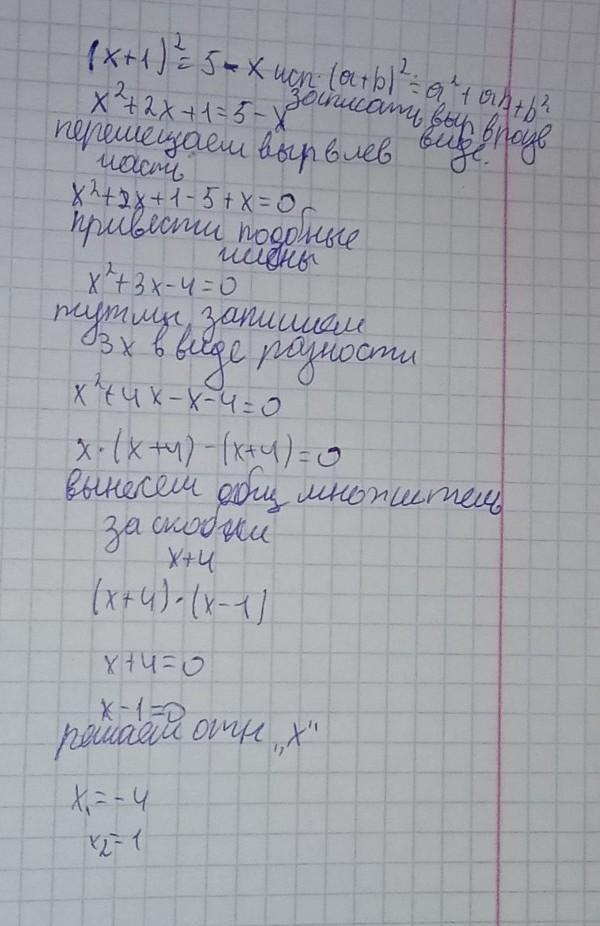 (x+1)²=5-x исп. (a+b)²=a²+ab+b²
x²+2x+1=5-x записать выр в разв виде.
перемещаем выр в лев
часть
x²+2x+1-5+x=0
привести подобные
члены
x²+3x-4=0
запишем
3x в виде разности
x²+4x-x-4=0
x·(x+4)-(x+4)=0
вынесем общ множитель
за скобки
x+4
(x+4)·(x-1)
x+4=0
x-1=0
решаем отн „x"
x₁=-4
x₂=1